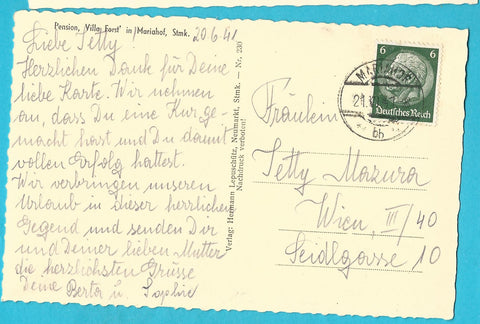 Pension „Villa Forst" in Mariahof, Stmk.
20.6.41
Liebe Tetty!
Herzlichen Dank für Deine
liebe Karte. Wir nehmen
an, dass Du eine Kur ge-
macht hast und Du damit
vollen Erfolg hattest.
Wir verbringen unseren
Urlaub in dieser herrlichen
Gegend und senden Dir
und Deiner lieben Mutter
die herzlichsten Grüsse
Deine Berta u. Sophie
Verlag: Hermann Leposchütz, Neumarkt, Stmk. — Nr. 230
Nachdruck verboten!
6 6
Deutsches Reich
MARIAHOF
21.
bh
Fräulein
Tetty Mazura
Wien, III/40
Seidlgasse 10